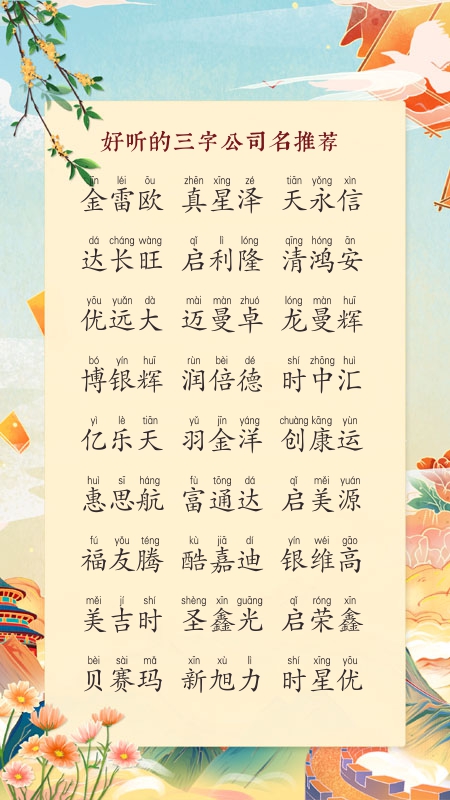 好听的三字公司名推荐
jīn léi ōu zhēn xīng zé tiān yǒng xìn
金雷欧 真星泽 天永信
dá cháng wàng qǐ lì lóng qīng hóng ān
达长旺 启利隆 清鸿安
yōu yuǎn dà mài màn zhuó lóng màn huī
优远大 迈曼卓 龙曼辉
bó yín huī rùn bèi dé shí zhōng huì
博银辉 润倍德 时中汇
yì lè tiān yǔ jīn yáng chuàng kāng yùn
亿乐天 羽金洋 创康运
huì sī háng fù tōng dá qǐ měi yuán
惠思航 富通达 启美源
fú yǒu téng kù jiā dí yín wéi gāo
福友腾 酷嘉迪 银维高
měi jí shí shèng xīn guāng qǐ róng xīn
美吉时 圣鑫光 启荣鑫
bèi sài mǎ xīn xù lì shí xīng yōu
贝赛玛 新旭力 时星优